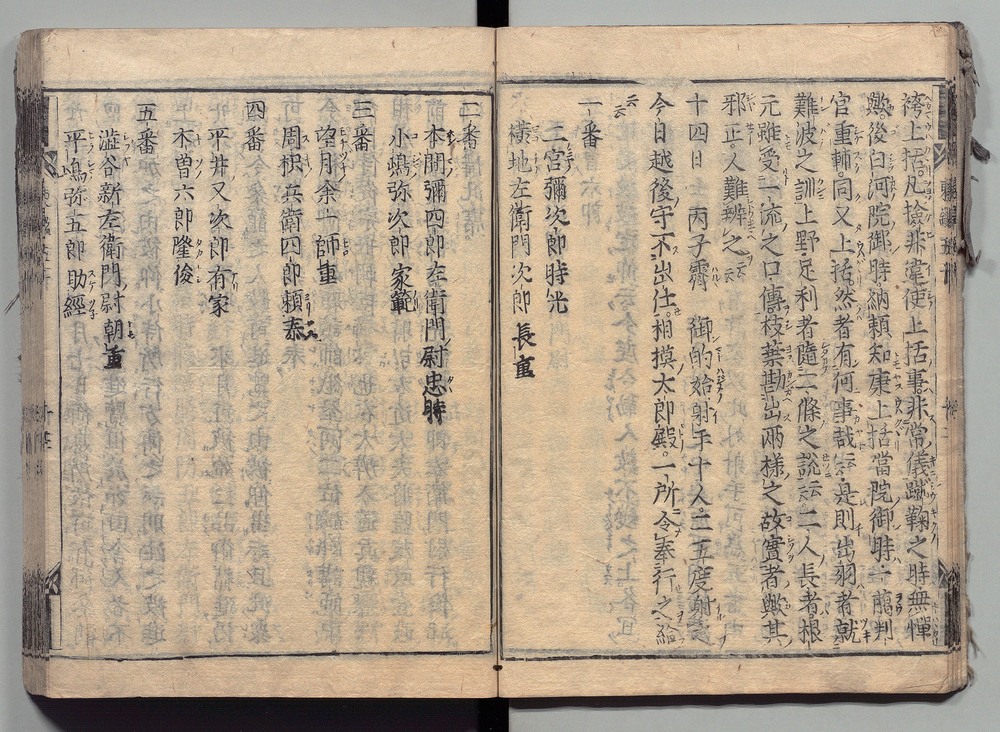 袴上括。凡撿非違使上括事。非常儀蹴鞠之時無憚
歟。後白河院御時。納頼知康上括當院御時。一﨟判
官重輔。同又上括。然者有何事哉云云。是則出羽者就
難波之訓上野。足利者隨二條之説云云。二人長者根
元雖受一流之口傳枝葉勘出兩様之故實者歟其
邪正人難辨之云云
十四日　丙子霽　御的始射手十人。二五度射之
今日越後守不出仕。相摸太郎殿一所令奉行之給
云云
一番
二宮彌次郎時光
横地左衛門次郎長重
二番
本間彌四郎左衛門尉忠時
小嶋弥次郎家範
三番
望月余一師重
周枳兵衛四郎頼泰
四番
平井又次郎有家
木曽六郎隆俊
五番
澁谷新左衛門尉朝重
平嶋弥五郎助經